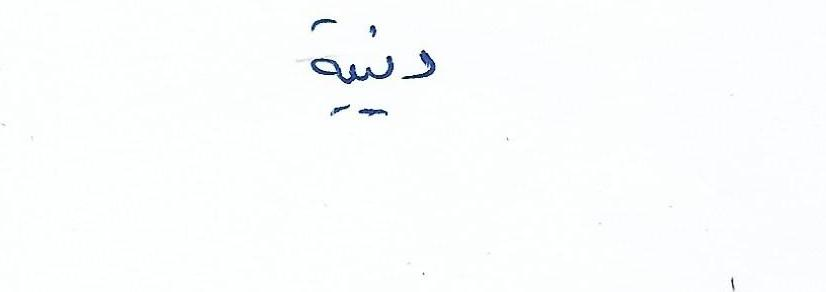 دينية